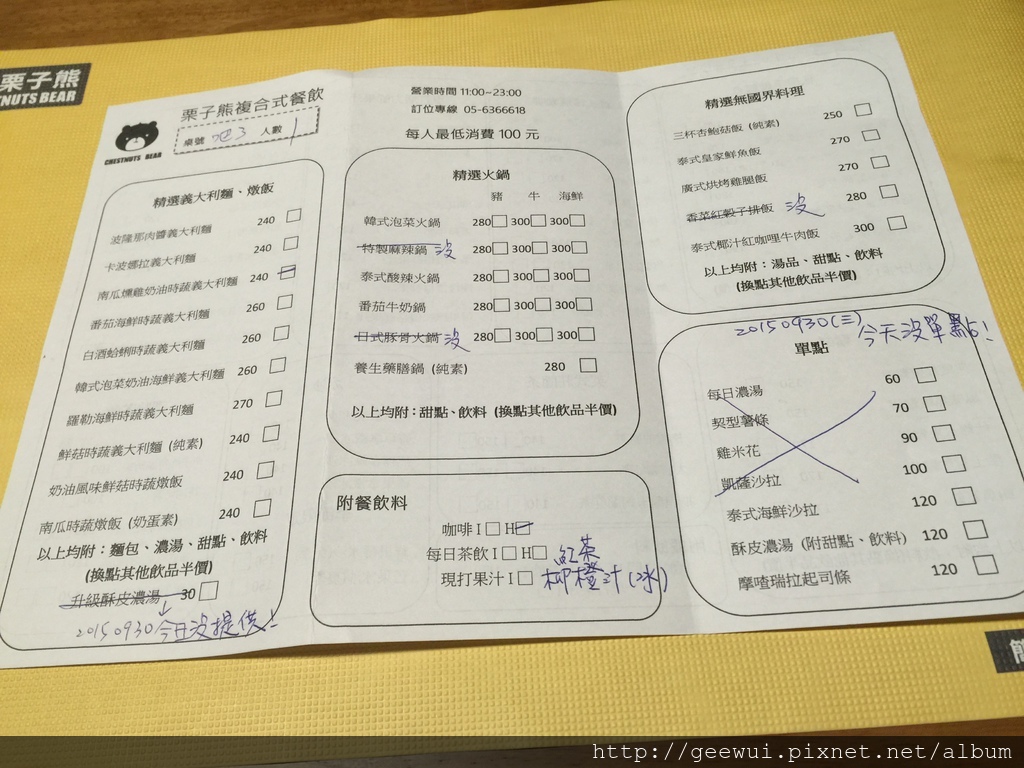 栗子熊
CHESTNUTS BEAR
栗子熊複合式餐飲
桌號 吧3 人數 1
CHESTNUTS BEAR
營業時間 11:00~23:00
訂位專線 05-6366618
每人最低消費 100 元
精選義大利麵、燉飯
波隆那肉醬義大利麵 240
卡波娜拉義大利麵 240
南瓜燻雞奶油時蔬義大利麵 240
番茄海鮮時蔬義大利麵 260
白酒蛤蜊時蔬義大利麵 260
韓式泡菜奶油海鮮義大利麵 260
羅勒海鮮時蔬義大利麵 270
鮮菇時蔬義大利麵 (純素) 240
奶油風味鮮菇時蔬燉飯 240
南瓜時蔬燉飯 (奶蛋素) 240
以上均附：麵包、濃湯、甜點、飲料
(換點其他飲品半價)
升級酥皮濃湯 30
20150930今日沒提供!
精選火鍋
豬 牛 海鮮
韓式泡菜火鍋 280 300 300
特製麻辣鍋 沒 280 300 300
泰式酸辣火鍋 280 300 300
番茄牛奶鍋 280 300 300
日式豚骨火鍋 沒 280 300 300
養生藥膳鍋 (純素) 280
以上均附：甜點、飲料 (換點其他飲品半價)
附餐飲料
咖啡 I H
每日茶飲 I H 紅茶
現打果汁 I 柳橙汁(冰)
精選無國界料理
三杯杏鮑菇飯 (純素) 250
泰式皇家鮮魚飯 270
廣式烘烤雞腿飯 270
香菜紅穀子排飯 沒 280
泰式椰汁紅咖哩牛肉飯 300
以上均附：湯品、甜點、飲料
(換點其他飲品半價)
20150930(三)今天沒單點!
單點
每日濃湯 60
契型薯條 70
雞米花 90
凱薩沙拉 100
泰式海鮮沙拉 120
酥皮濃湯 (附甜點、飲料) 120
摩喳瑞拉起司條 120
http://geewui.pixnet.net/album